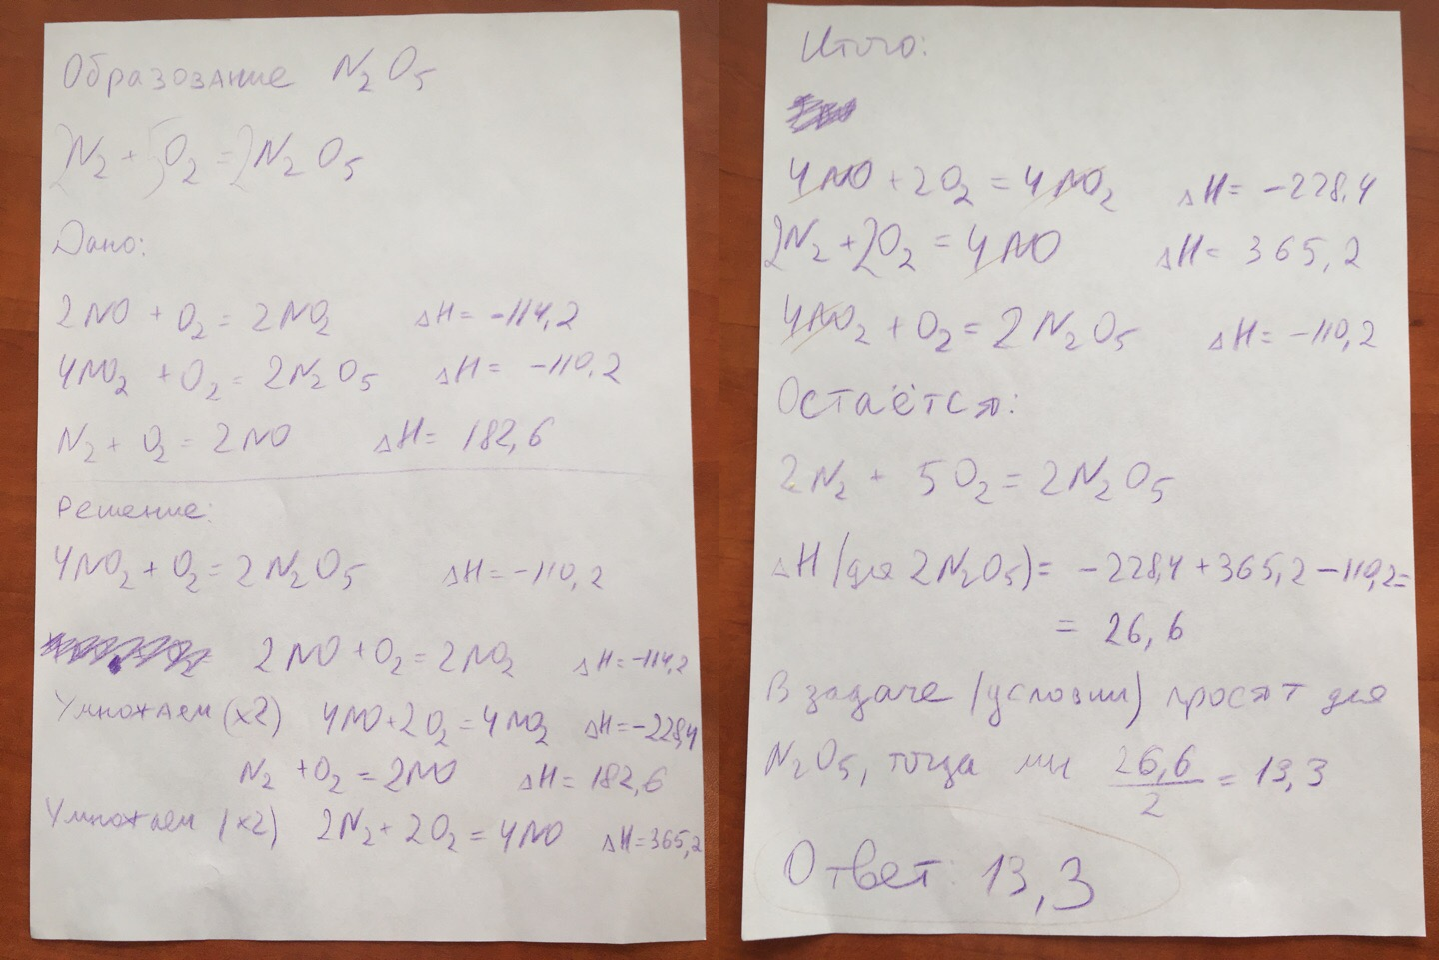 Образование N₂O₅
2N₂ + 5O₂ = 2N₂O₅
Дано:
2NO + O₂ = 2NO₂ ΔH = -114,2
4NO₂ + O₂ = 2N₂O₅ ΔH = -110,2
N₂ + O₂ = 2NO ΔH = 182,6
Решение:
4NO₂ + O₂ = 2N₂O₅ ΔH = -110,2
2NO + O₂ = 2NO₂ ΔH = -114,2
Умножаем (x2) 4NO + 2O₂ = 4NO₂ ΔH = -228,4
N₂ + O₂ = 2NO ΔH = 182,6
Умножаем (x2) 2N₂ + 2O₂ = 4NO ΔH = 365,2
Итого:
4NO + 2O₂ = 4NO₂ ΔH = -228,4
2N₂ + 2O₂ = 4NO ΔH = 365,2
4NO₂ + O₂ = 2N₂O₅ ΔH = -110,2
Остаётся:
2N₂ + 5O₂ = 2N₂O₅
ΔH (для 2N₂O₅) = -228,4 + 365,2 - 110,2 =
= 26,6
В задаче (условии) просят для
N₂O₅, тогда мы 26,6/2 = 13,3
Ответ: 13,3